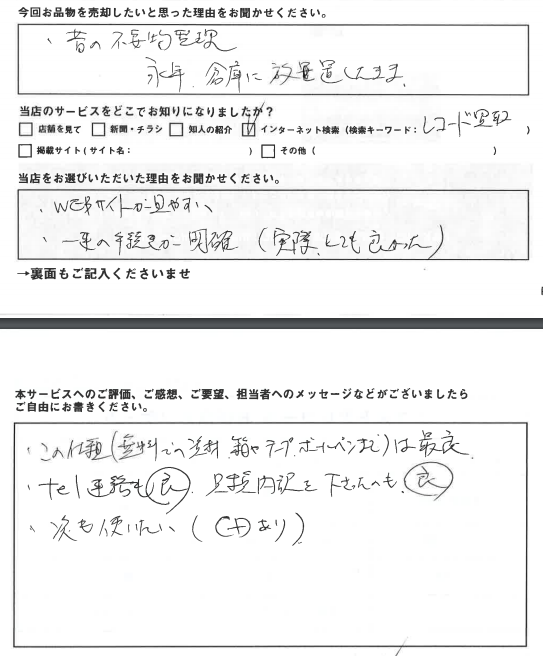 今回お品物を売却したいと思った理由をお聞かせください。
、昔の不要物整理
永年、倉庫に放置していたまま
当店のサービスをどこでお知りになりましたか？
□ 店舗を見て □ 新聞・チラシ □ 知人の紹介 ☑ インターネット検索（検索キーワード：レコード買取 ）
□ 掲載サイト（サイト名： ） □ その他（ ）
当店をお選びいただいた理由をお聞かせください。
・WEBサイトが見やすい
・一連の手続きが明確（実際、とても良かった）
→裏面もご記入くださいませ
本サービスへのご評価、ご感想、ご要望、担当者へのメッセージなどがございましたら
ご自由にお書きください。
・この仕組（無料での送料、箱やテープ、ボールペンまで）は最良
・tel連絡も良、見積内訳を下さったのも、良
・次も使いたい（CDあり）